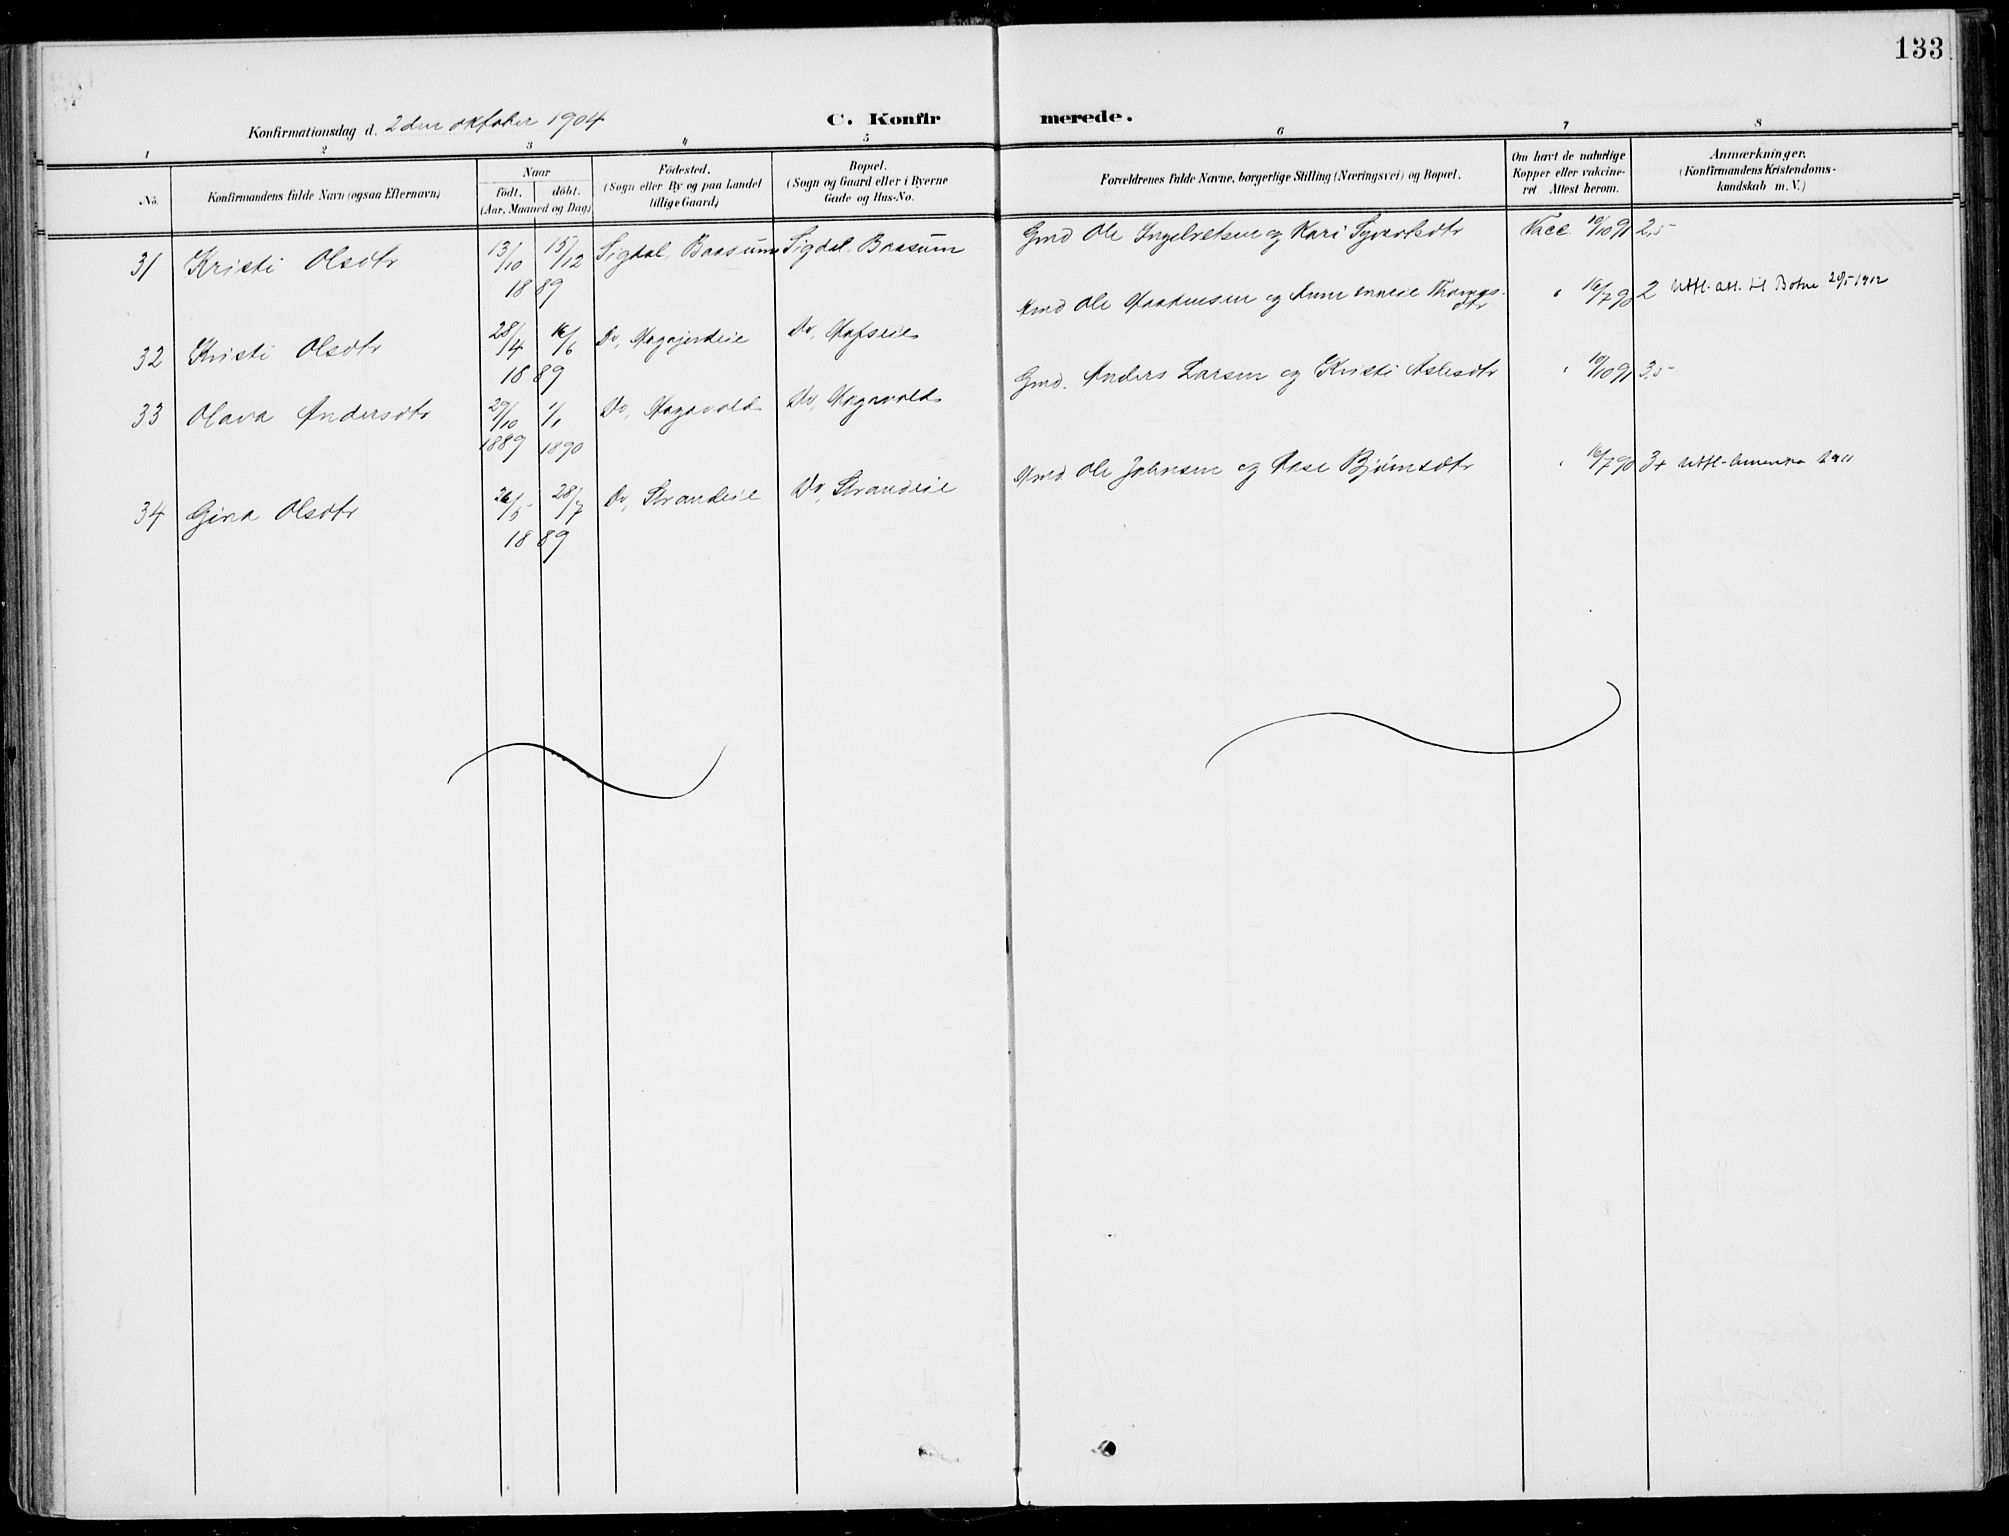 133
Konfirmationsdag d. 2den oktober 1904
C. Konfir merede.
1 2 3 4 5 6 7 8
No.
Konfirmandens fulde Navn (ogsaa Efternavn)
Naar
født. døbt.
(Aar, Maaned og Dag)
Fødested.
(Sogn eller By og paa Landet
tillige Gaard)
Bopæl.
(Sogn og Gaard eller i Byerne
Gade og Hus-No.
Forældrenes fulde Navne, borgerlige Stilling (Næringsvei) og Bopæl.
Om havt de naturlige
Kopper eller vakcine-
ret Attest herom.
Anmærkninger.
(Konfirmandens Kristendoms-
kundskab m. V.)
31 Kristi Olsdtr 13/10 15/12 Sigdal, Baasum Sigdal Baasum Gmd Ole Ingebretsen og Kari Syvertsdtr Vacc. 10/10 91 2,5
18 89
32 Kristi Olsdtr 28/4 16/6 Do, Do, Hmd Ole og Anne Marie Thomas- dtr " 16/7 90 2 Utfl. att. til Botne 1912
18 89
33 Olava Andersdtr 29/10 1/1 Do, Hagavold Do, Hagavold Gmd. Anders Larsen og Kristi Aslesdtr " 10/10 91 3,5
1889 1890
34 Gina Olsdtr 26/5 28/7 Do, Strandeie Do, Strandeie Hmd. Ole Johnsen og Aase Bjørnsdtr " 16/7 90 3+ Utfl. Amerika 1911
18 89